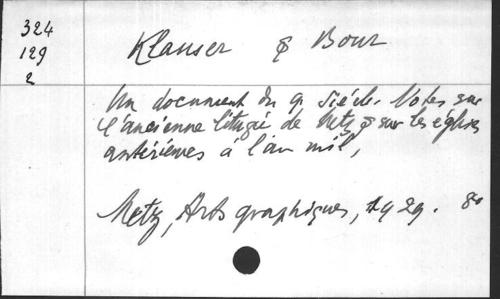 324
129
2
Klauser & Bour
Un document du 9. siécle. Notes sur
l'ancienne liturgie de Metz & sur les églises
antérieures à l'an mil,
Metz, Arts graphiques, 1929. 8º